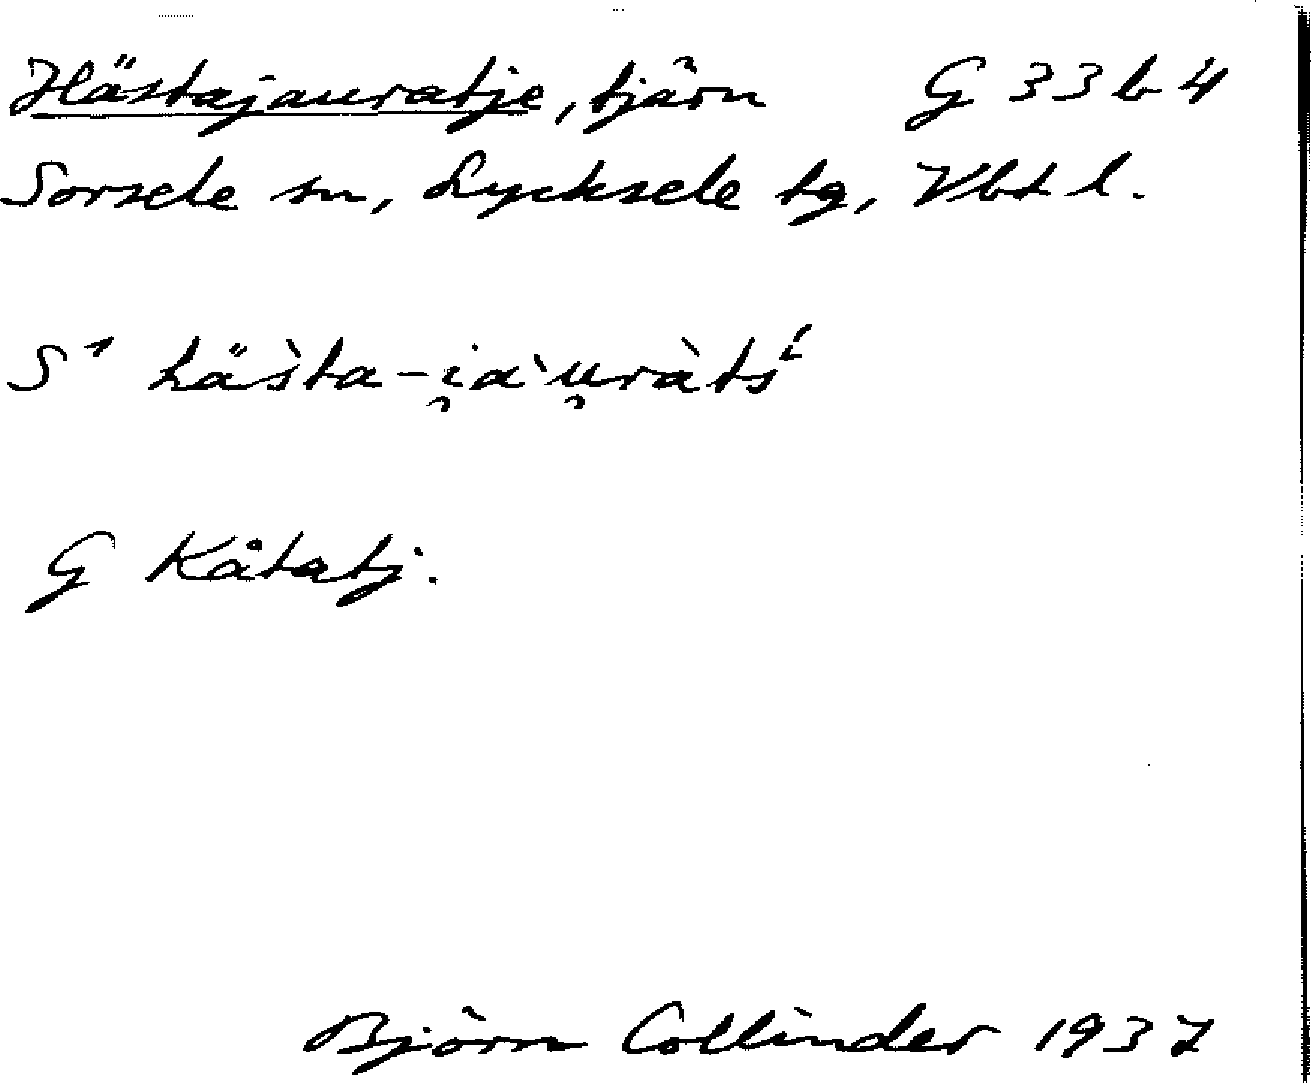 Hästajauratje, tjärn G 33 b 4
Sorsele sn, Lycksele tg, Vbt l.
S¹ hästa-i̯a`u̯ràts
G Kåtatj.
Björn Collinder 1937